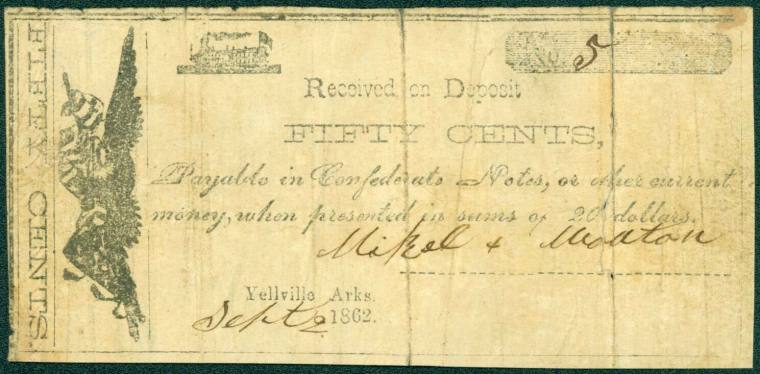 FIFTY CENTS
No. 5
Received on Deposit
FIFTY CENTS,
Payable in Confederate Notes, or other current
money, when presented in sums of 20 dollars.
Mikel & Wootton
Yellville Arks.
Sept 2 1862.